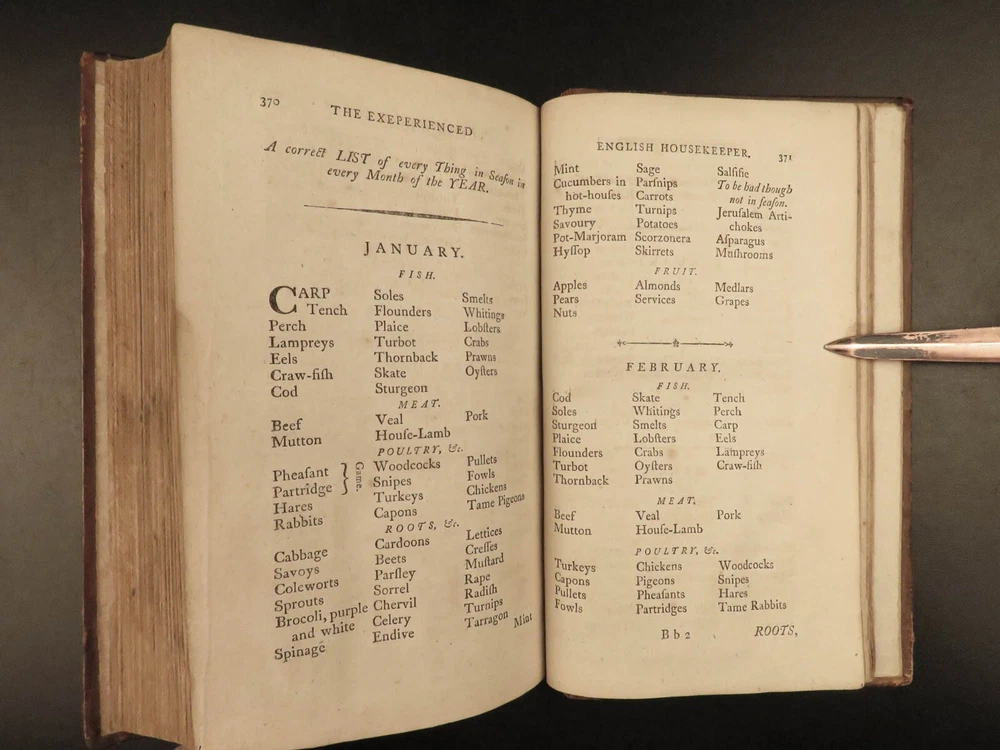 370
THE EXEPERIENCED
A correct LIST of every Thing in Seaſon in
every Month of the YEAR.
JANUARY.
FISH.
CARP
Tench
Perch
Lampreys
Eels
Craw-fiſh
Cod
Soles
Flounders
Plaice
Turbot
Thornback
Skate
Sturgeon
Smelts
Whitings
Lobſters
Crabs
Prawns
Oyſters
MEAT.
Beef
Mutton
Veal
Houſe-Lamb
Pork
POULTRY, &c.
Pheaſant
Partridge
Game.
Hares
Rabbits
Woodcocks
Snipes
Turkeys
Capons
Pullets
Fowls
Chickens
Tame Pigeons
ROOTS, &c.
Cabbage
Savoys
Coleworts
Sprouts
Brocoli, purple
and white
Spinage
Cardoons
Beets
Parſley
Sorrel
Chervil
Celery
Endive
Lettices
Creſſes
Muſtard
Rape
Radiſh
Turnips
Tarragon
Mint
ENGLISH HOUSEKEEPER.
371
Mint
Cucumbers in
hot-houſes
Thyme
Savoury
Pot-Marjoram
Hyſſop
Sage
Parſnips
Carrots
Turnips
Potatoes
Scorzonera
Skirrets
Salſifie
To be had though
not in ſeaſon.
Jeruſalem Arti-
chokes
Aſparagus
Muſhrooms
FRUIT.
Apples
Pears
Nuts
Almonds
Services
Medlars
Grapes
FEBRUARY.
FISH.
Cod
Soles
Sturgeon
Plaice
Flounders
Turbot
Thornback
Skate
Whitings
Smelts
Lobſters
Crabs
Oyſters
Prawns
Tench
Perch
Carp
Eels
Lampreys
Craw-fiſh
MEAT.
Beef
Mutton
Veal
Houſe-Lamb
Pork
POULTRY, &c.
Turkeys
Capons
Pullets
Fowls
Chickens
Pigeons
Pheaſants
Partridges
Woodcocks
Snipes
Hares
Tame Rabbits
B b 2
ROOTS,